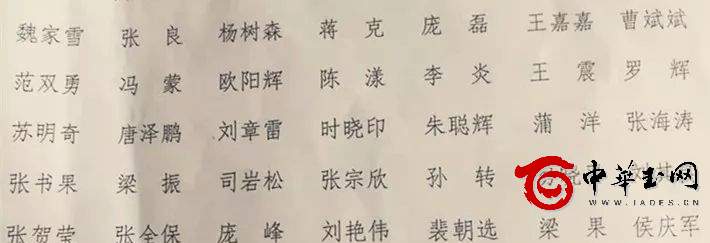 魏家雪 张 良 杨树森 蒋 克 庞 磊 王嘉嘉 曹斌斌
范双勇 冯 蒙 欧阳辉 陈 漾 李 炎 王 震 罗 辉
苏明奇 唐泽鹏 刘章雷 时晓印 朱聪辉 蒲 洋 张海涛
张书果 梁 振 司岩松 张宗欣 孙 转
中華玉网
WWW.JADES.CN
张贺莹 张全保 庞 峰 刘艳伟 裴朝选 梁 果 侯庆军